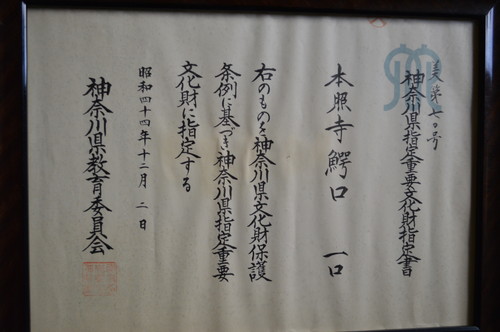 美第七〇号
神奈川県指定重要文化財指定書
本照寺鰐口 一口
右のものを神奈川県文化財保護
条例に基づき神奈川県指定重要
文化財に指定する
昭和四十四年十二月 二日
神奈川県教育委員会